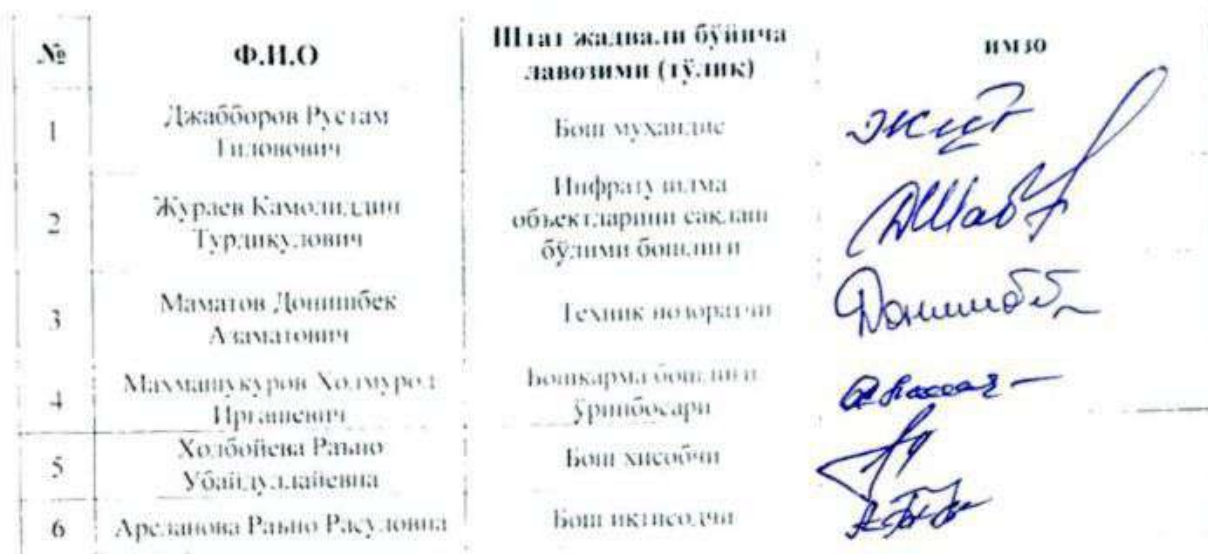 № Ф.И.О Штат жадвали бўйича лавозими (тўлиқ) имзо
1 Джабборов Рустам Тиловович Бош муҳандис
2 Жураев Камолиддин Турдикулович Инфратузилма объектларини сақлаш бўлими бошлиғи
3 Маматов Донишбек Азаматович Техник назоратчи Донишбек
4 Махмашукуров Холмурод Иргашевич Бошқарма бошлиғи ўринбосари
5 Холбойева Раъно Убайдуллайевна Бош хисобчи
6 Арсланова Раъно Расуловна Бош иқтисодчи